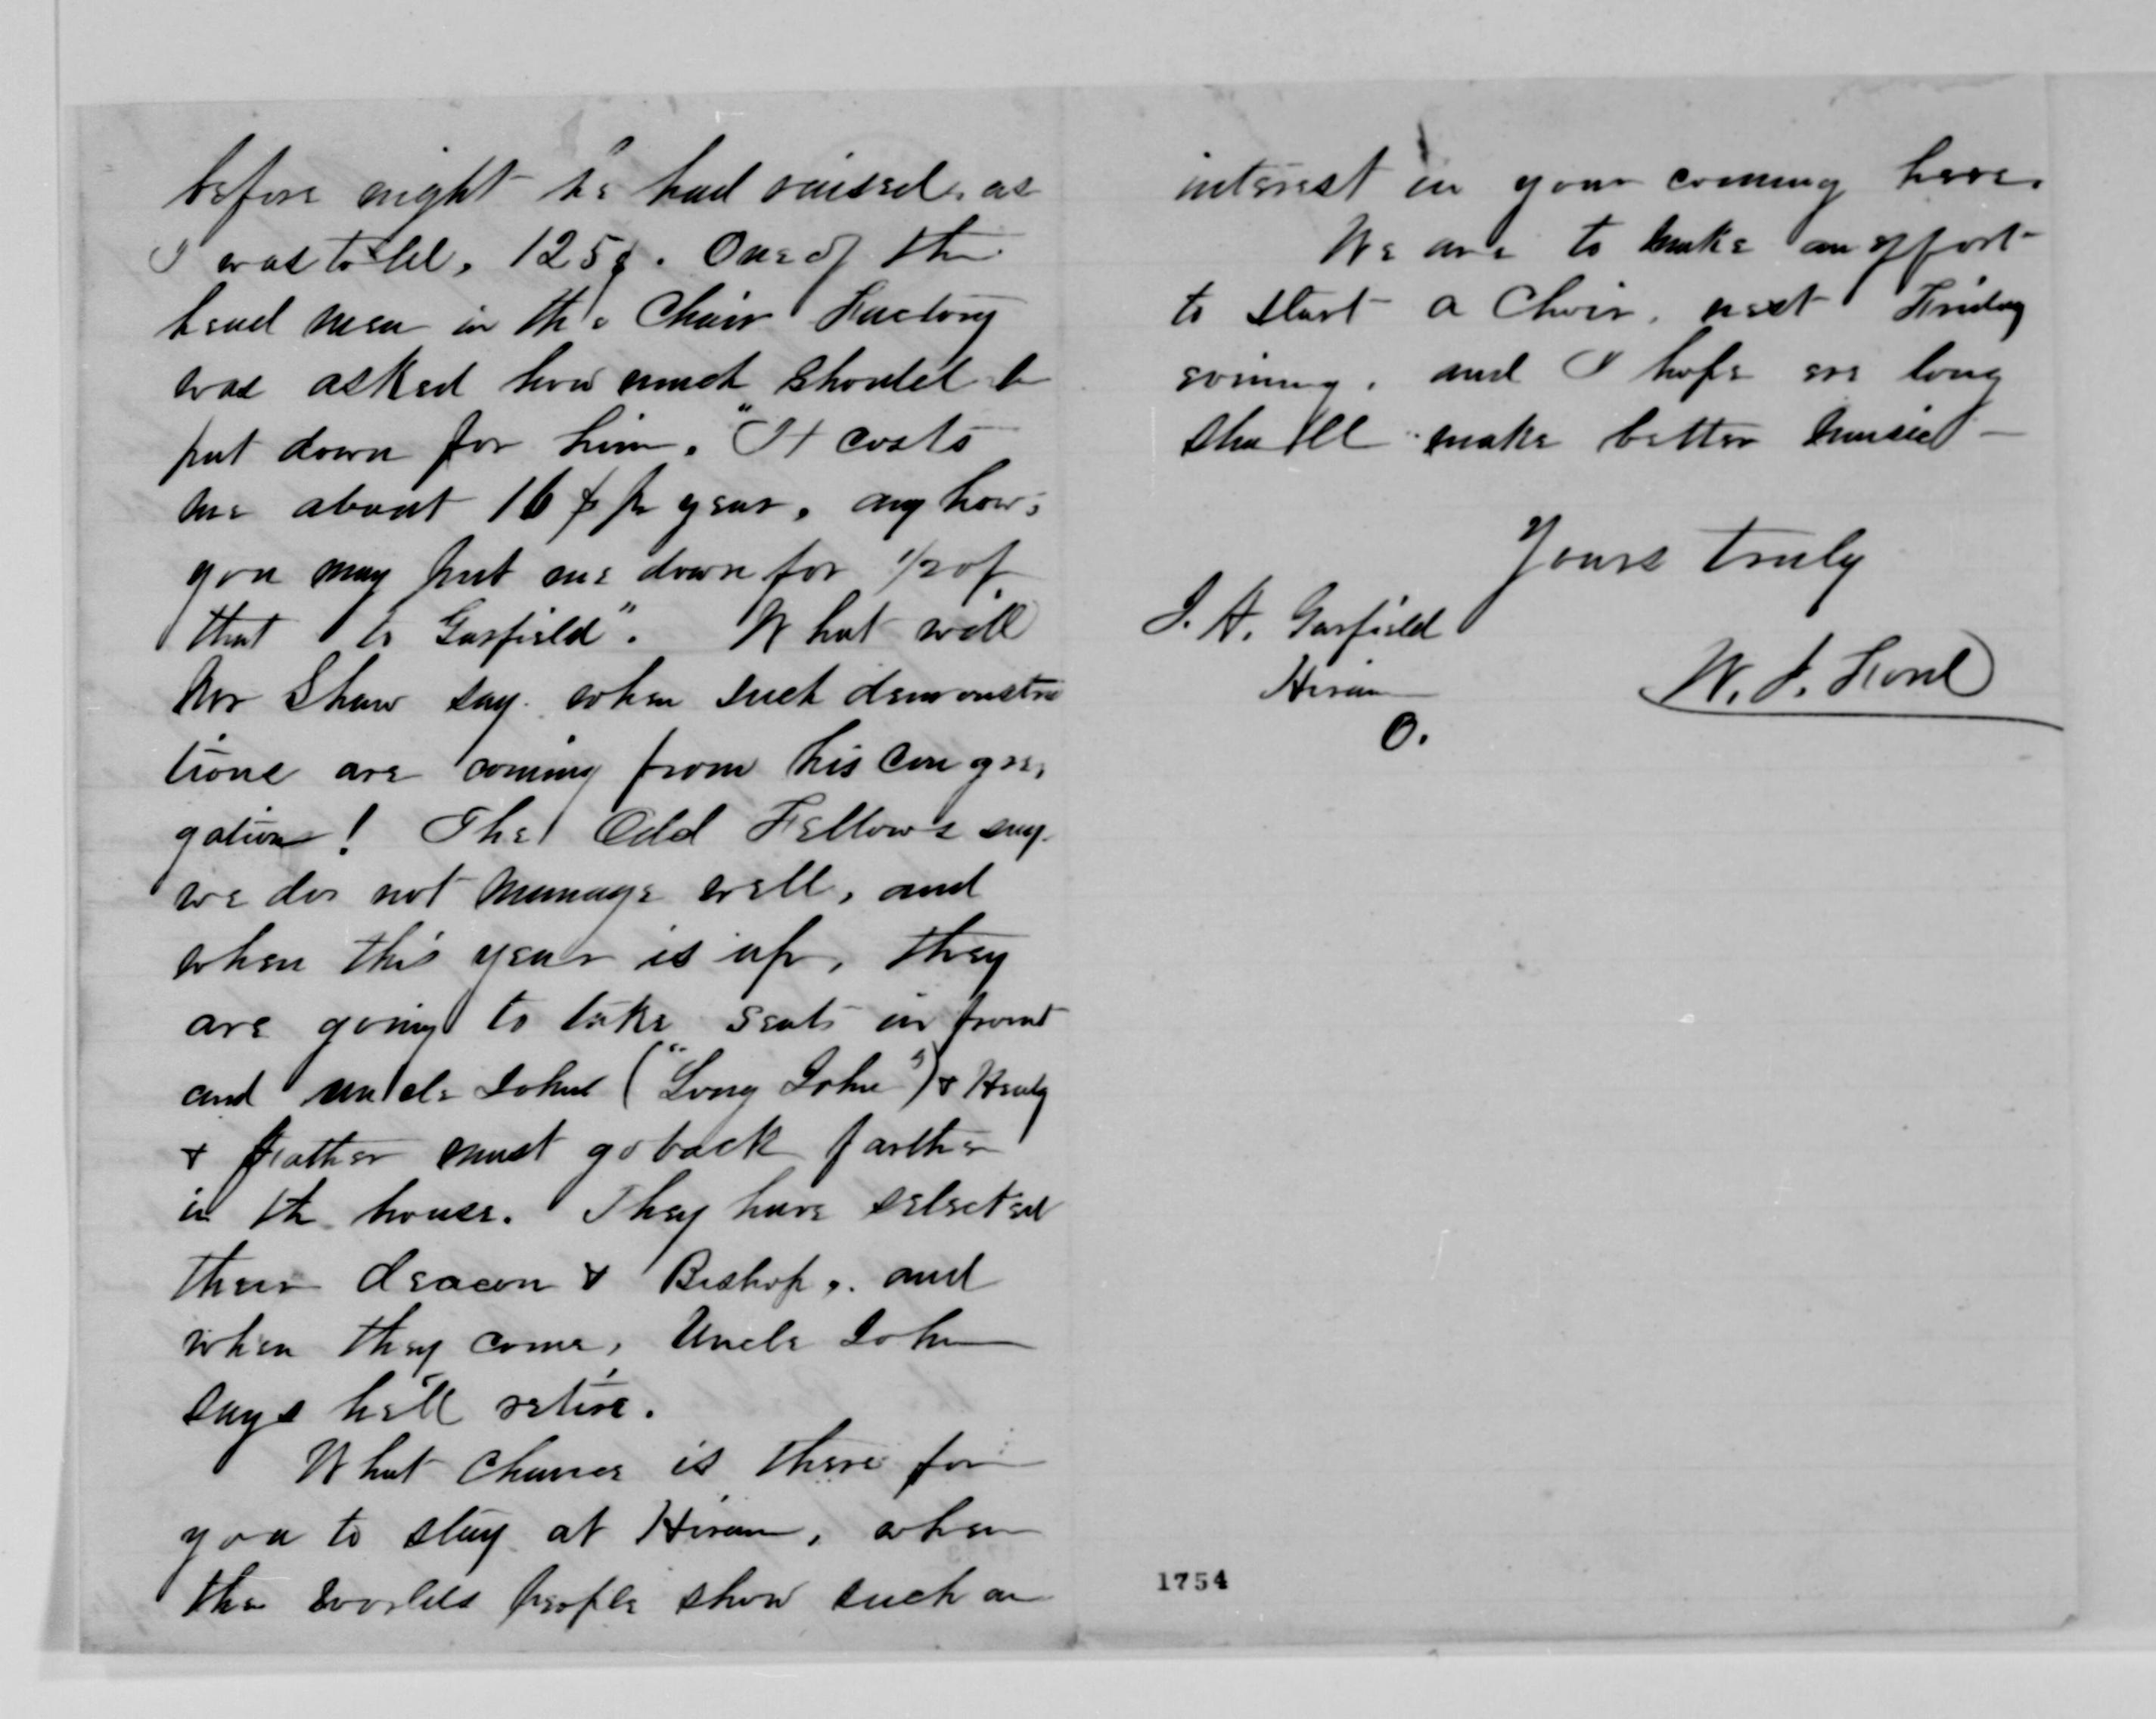 before night he had raised, as
I was told, 125$. One of the
head men in the Chair Factory
was asked how much should be
put down for him. "It costs
me about 16$ pr year, anyhow;
you may put me down for 1/2 of
that to Garfield". What will
Mr Shaw say when such demonstra
tions are coming from his congre,
gation! The Odd Fellows say
we do not manage well, and
when this year is up, they
are going to take seats in front
and uncle John ("Long John") & Healy
& Father must go back farther
in the house. They have selected
their deacon & Bishop, and
when they come, Uncle John
says he'll retire.
What chance is there for
you to stay at Hiram, when
the worlds people show such an
interest in your coming here.
We are to make an effort
to start a Choir, next Friday
evening, and I hope ere long
shall make better music —
Yours truly
J. A. Garfield
Hiram
O.
W. J. Ford
1754